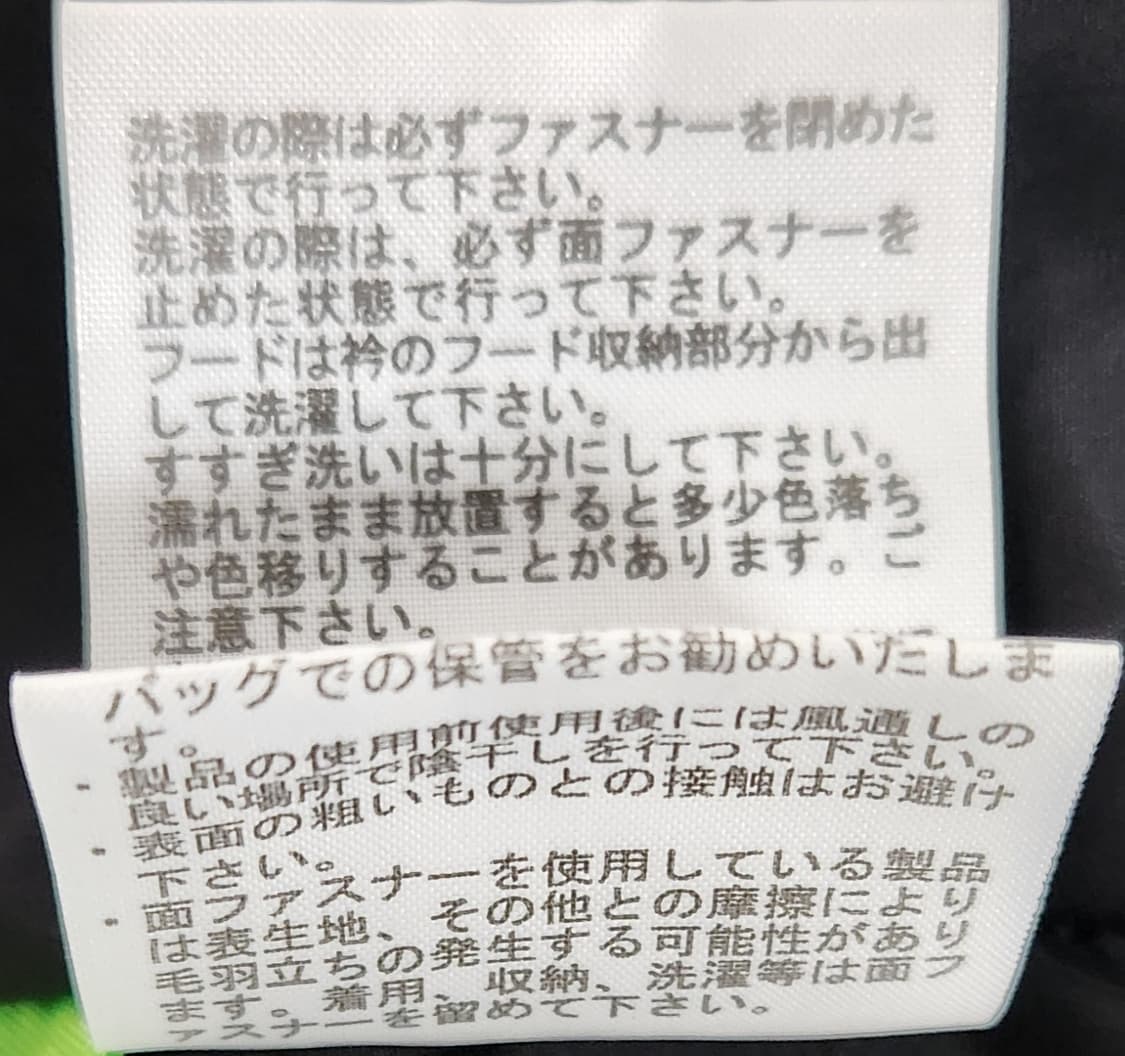 洗濯の際は必ずファスナーを閉めた
状態で行って下さい。
洗濯の際は、必ず面ファスナーを
止めた状態で行って下さい。
フードは衿のフード収納部分から出
して洗濯して下さい。
すすぎ洗いは十分にして下さい。
濡れたまま放置すると多少色落ち
や色移りすることがあります。ご
注意下さい。
バッグでの保管をお勧めいたしま
す。
・製品の使用前使用後には風通しの
良い場所で陰干しを行って下さい。
・表面の粗いものとの接触はお避け
下さい。
・面ファスナーを使用している製品
は表生地、その他との摩擦により
毛羽立ちの発生する可能性があり
ます。着用、収納、洗濯等は面フ
ァスナーを留めて下さい。